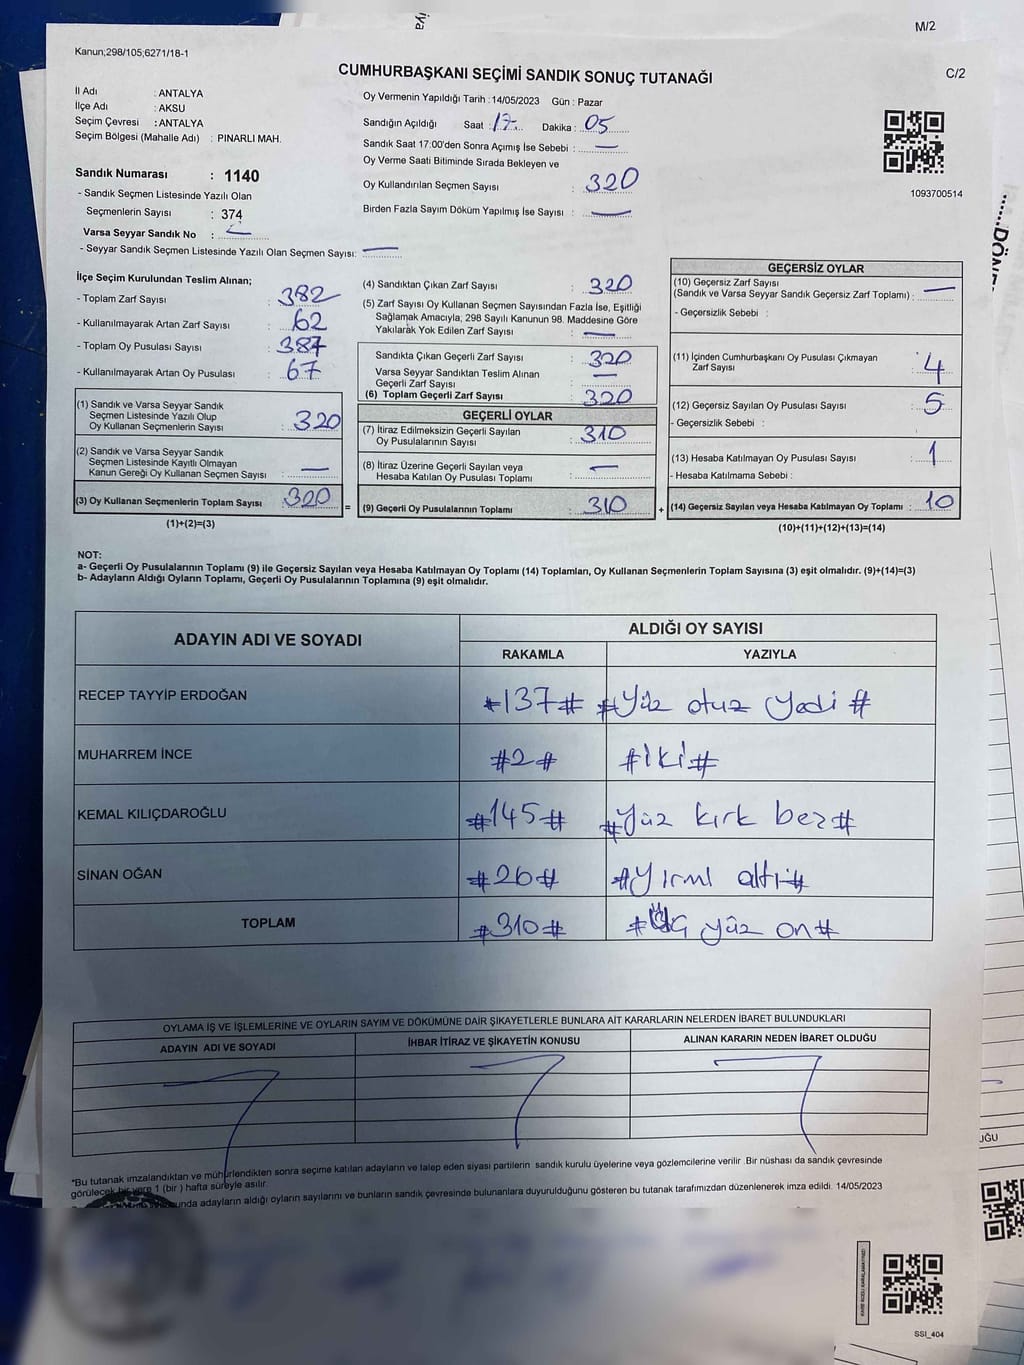 iya
M/2
Kanun;298/105;6271/18-1
CUMHURBAŞKANI SEÇİMİ SANDIK SONUÇ TUTANAĞI
C/2
İl Adı : ANTALYA
İlçe Adı : AKSU
Seçim Çevresi : ANTALYA
Seçim Bölgesi (Mahalle Adı) : PINARLI MAH.
Sandık Numarası : 1140
- Sandık Seçmen Listesinde Yazılı Olan
Seçmenlerin Sayısı : 374
Varsa Seyyar Sandık No : —
- Seyyar Sandık Seçmen Listesinde Yazılı Olan Seçmen Sayısı: —
Oy Vermenin Yapıldığı Tarih : 14/05/2023 Gün : Pazar
Sandığın Açıldığı Saat : 17 Dakika : 05
Sandık Saat 17:00'den Sonra Açımış İse Sebebi : —
Oy Verme Saati Bitiminde Sırada Bekleyen ve
Oy Kullandırılan Seçmen Sayısı : 320
Birden Fazla Sayım Döküm Yapılmış İse Sayısı : —
1093700514
......DÖN
İlçe Seçim Kurulundan Teslim Alınan;
- Toplam Zarf Sayısı : 382
- Kullanılmayarak Artan Zarf Sayısı : 62
- Toplam Oy Pusulası Sayısı : 387
- Kullanılmayarak Artan Oy Pusulası : 67
(1) Sandık ve Varsa Seyyar Sandık
Seçmen Listesinde Yazılı Olup
Oy Kullanan Seçmenlerin Sayısı : 320
(2) Sandık ve Varsa Seyyar Sandık
Seçmen Listesinde Kayıtlı Olmayan
Kanun Gereği Oy Kullanan Seçmen Sayısı : —
(3) Oy Kullanan Seçmenlerin Toplam Sayısı : 320 =
(1)+(2)=(3)
(4) Sandıktan Çıkan Zarf Sayısı : 320
(5) Zarf Sayısı Oy Kullanan Seçmen Sayısından Fazla İse, Eşitliği
Sağlamak Amacıyla, 298 Sayılı Kanunun 98. Maddesine Göre
Yakılarak Yok Edilen Zarf Sayısı : —
Sandıkta Çıkan Geçerli Zarf Sayısı : 320
Varsa Seyyar Sandıktan Teslim Alınan
Geçerli Zarf Sayısı : —
(6) Toplam Geçerli Zarf Sayısı : 320
GEÇERLİ OYLAR
(7) İtiraz Edilmeksizin Geçerli Sayılan
Oy Pusulalarının Sayısı : 310
(8) İtiraz Üzerine Geçerli Sayılan veya
Hesaba Katılan Oy Pusulası Toplamı : —
(9) Geçerli Oy Pusulalarının Toplamı : 310 +
GEÇERSİZ OYLAR
(10) Geçersiz Zarf Sayısı
(Sandık ve Varsa Seyyar Sandık Geçersiz Zarf Toplamı) : —
- Geçersizlik Sebebi :
(11) İçinden Cumhurbaşkanı Oy Pusulası Çıkmayan
Zarf Sayısı : 4
(12) Geçersiz Sayılan Oy Pusulası Sayısı : 5
- Geçersizlik Sebebi :
(13) Hesaba Katılmayan Oy Pusulası Sayısı : 1
- Hesaba Katılmama Sebebi :
(14) Geçersiz Sayılan veya Hesaba Katılmayan Oy Toplamı : 10
(10)+(11)+(12)+(13)=(14)
NOT:
a- Geçerli Oy Pusulalarının Toplamı (9) ile Geçersiz Sayılan veya Hesaba Katılmayan Oy Toplamı (14) Toplamları, Oy Kullanan Seçmenlerin Toplam Sayısına (3) eşit olmalıdır. (9)+(14)=(3)
b- Adayların Aldığı Oyların Toplamı, Geçerli Oy Pusulalarının Toplamına (9) eşit olmalıdır.
ADAYIN ADI VE SOYADI
ALDIĞI OY SAYISI
RAKAMLA YAZIYLA
RECEP TAYYİP ERDOĞAN #137# #Yüz otuz yedi#
MUHARREM İNCE #2# #iki#
KEMAL KILIÇDAROĞLU #145# #Yüz kırk beş#
SİNAN OĞAN #26# #Yirmi altı#
TOPLAM #310# #Üç yüz on#
OYLAMA İŞ VE İŞLEMLERİNE VE OYLARIN SAYIM VE DÖKÜMÜNE DAİR ŞİKAYETLERLE BUNLARA AİT KARARLARIN NELERDEN İBARET BULUNDUKLARI
ADAYIN ADI VE SOYADI İHBAR İTİRAZ VE ŞİKAYETİN KONUSU ALINAN KARARIN NEDEN İBARET OLDUĞU
*Bu tutanak imzalandıktan ve mühürlendikten sonra seçime katılan adayların ve talep eden siyasi partilerin sandık kurulu üyelerine veya gözlemcilerine verilir .Bir nüshası da sandık çevresinde
görülecek bir yere 1 (bir ) hafta süreyle asılır.
unda adayların aldığı oyların sayılarını ve bunların sandık çevresinde bulunanlara duyurulduğunu gösteren bu tutanak tarafımızdan düzenlenerek imza edildi. 14/05/2023
UĞU
SSI_404